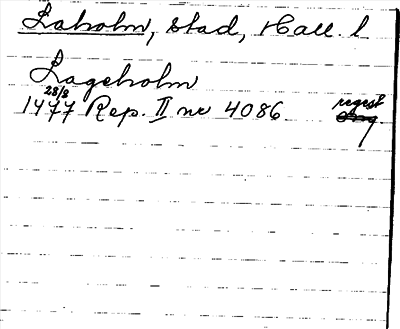 Laholm, stad, Hall. l
Lageholm
28/8
1477 Rep. II nr 4086 regest